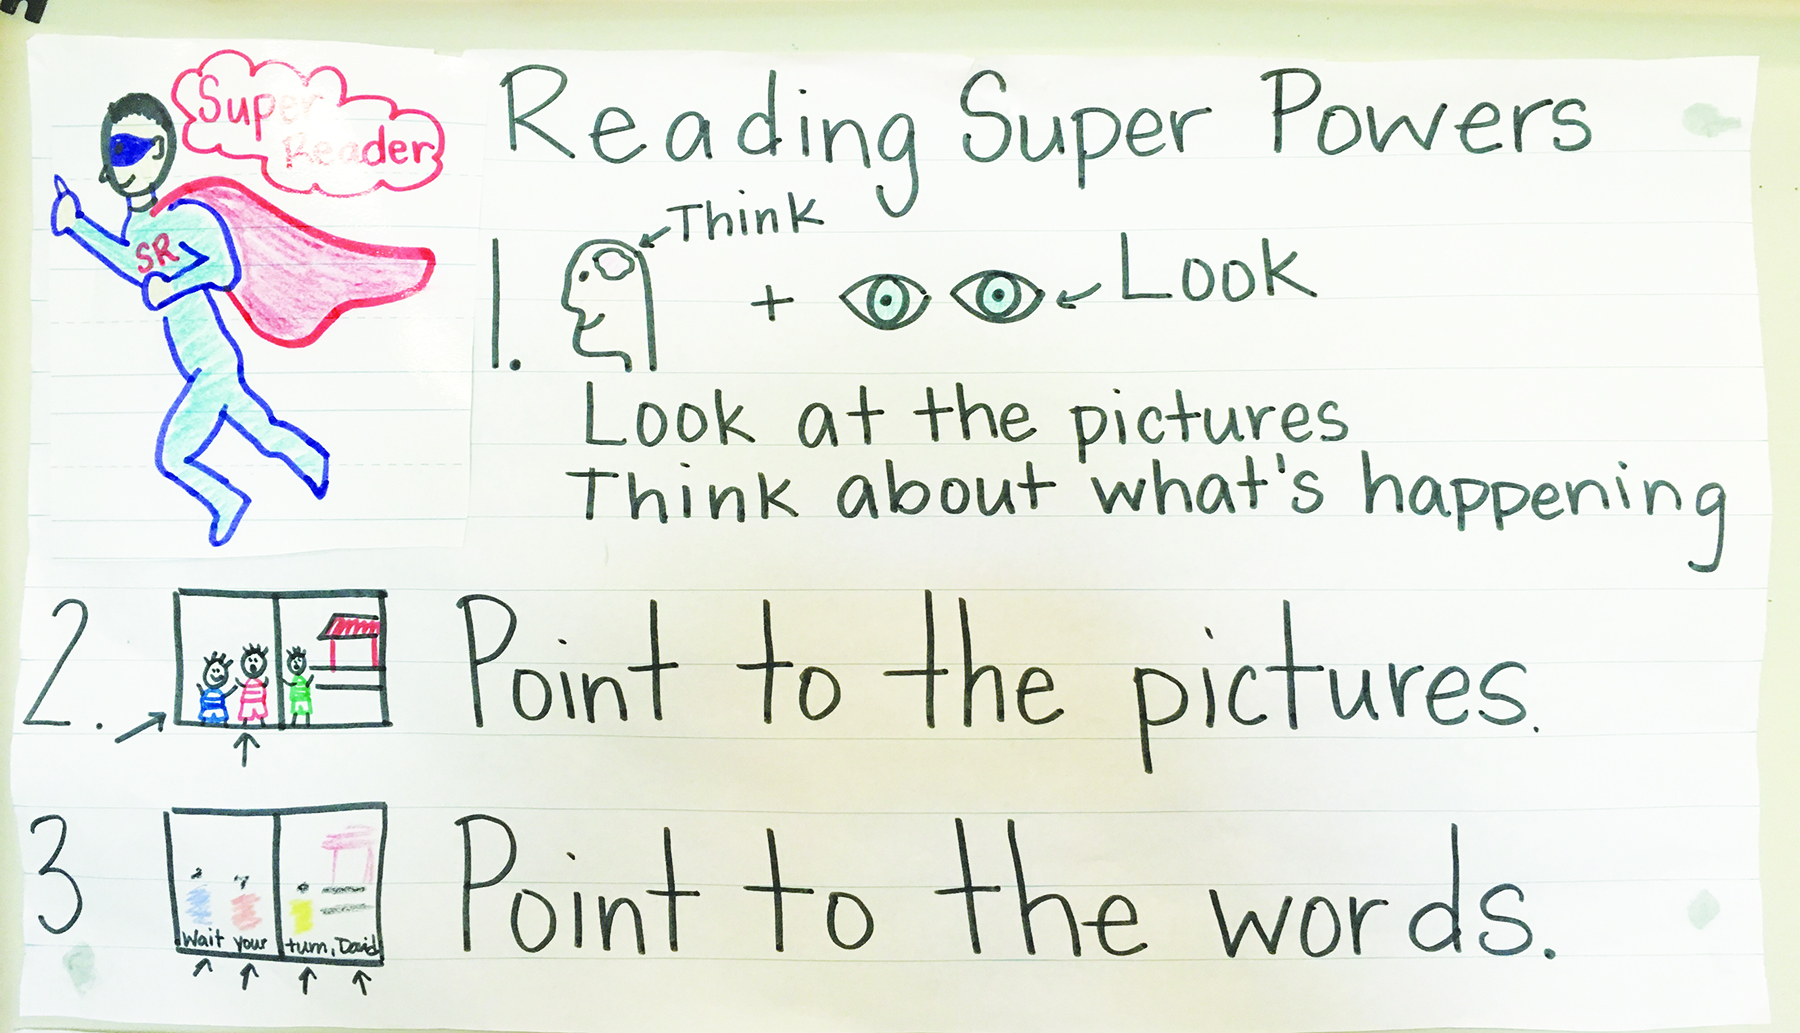 Super
Reader
SR
Reading Super Powers
1.
Think
+
Look
Look at the pictures
Think about what's happening
2.
Point to the pictures.
3
Wait your turn, David
Point to the words.